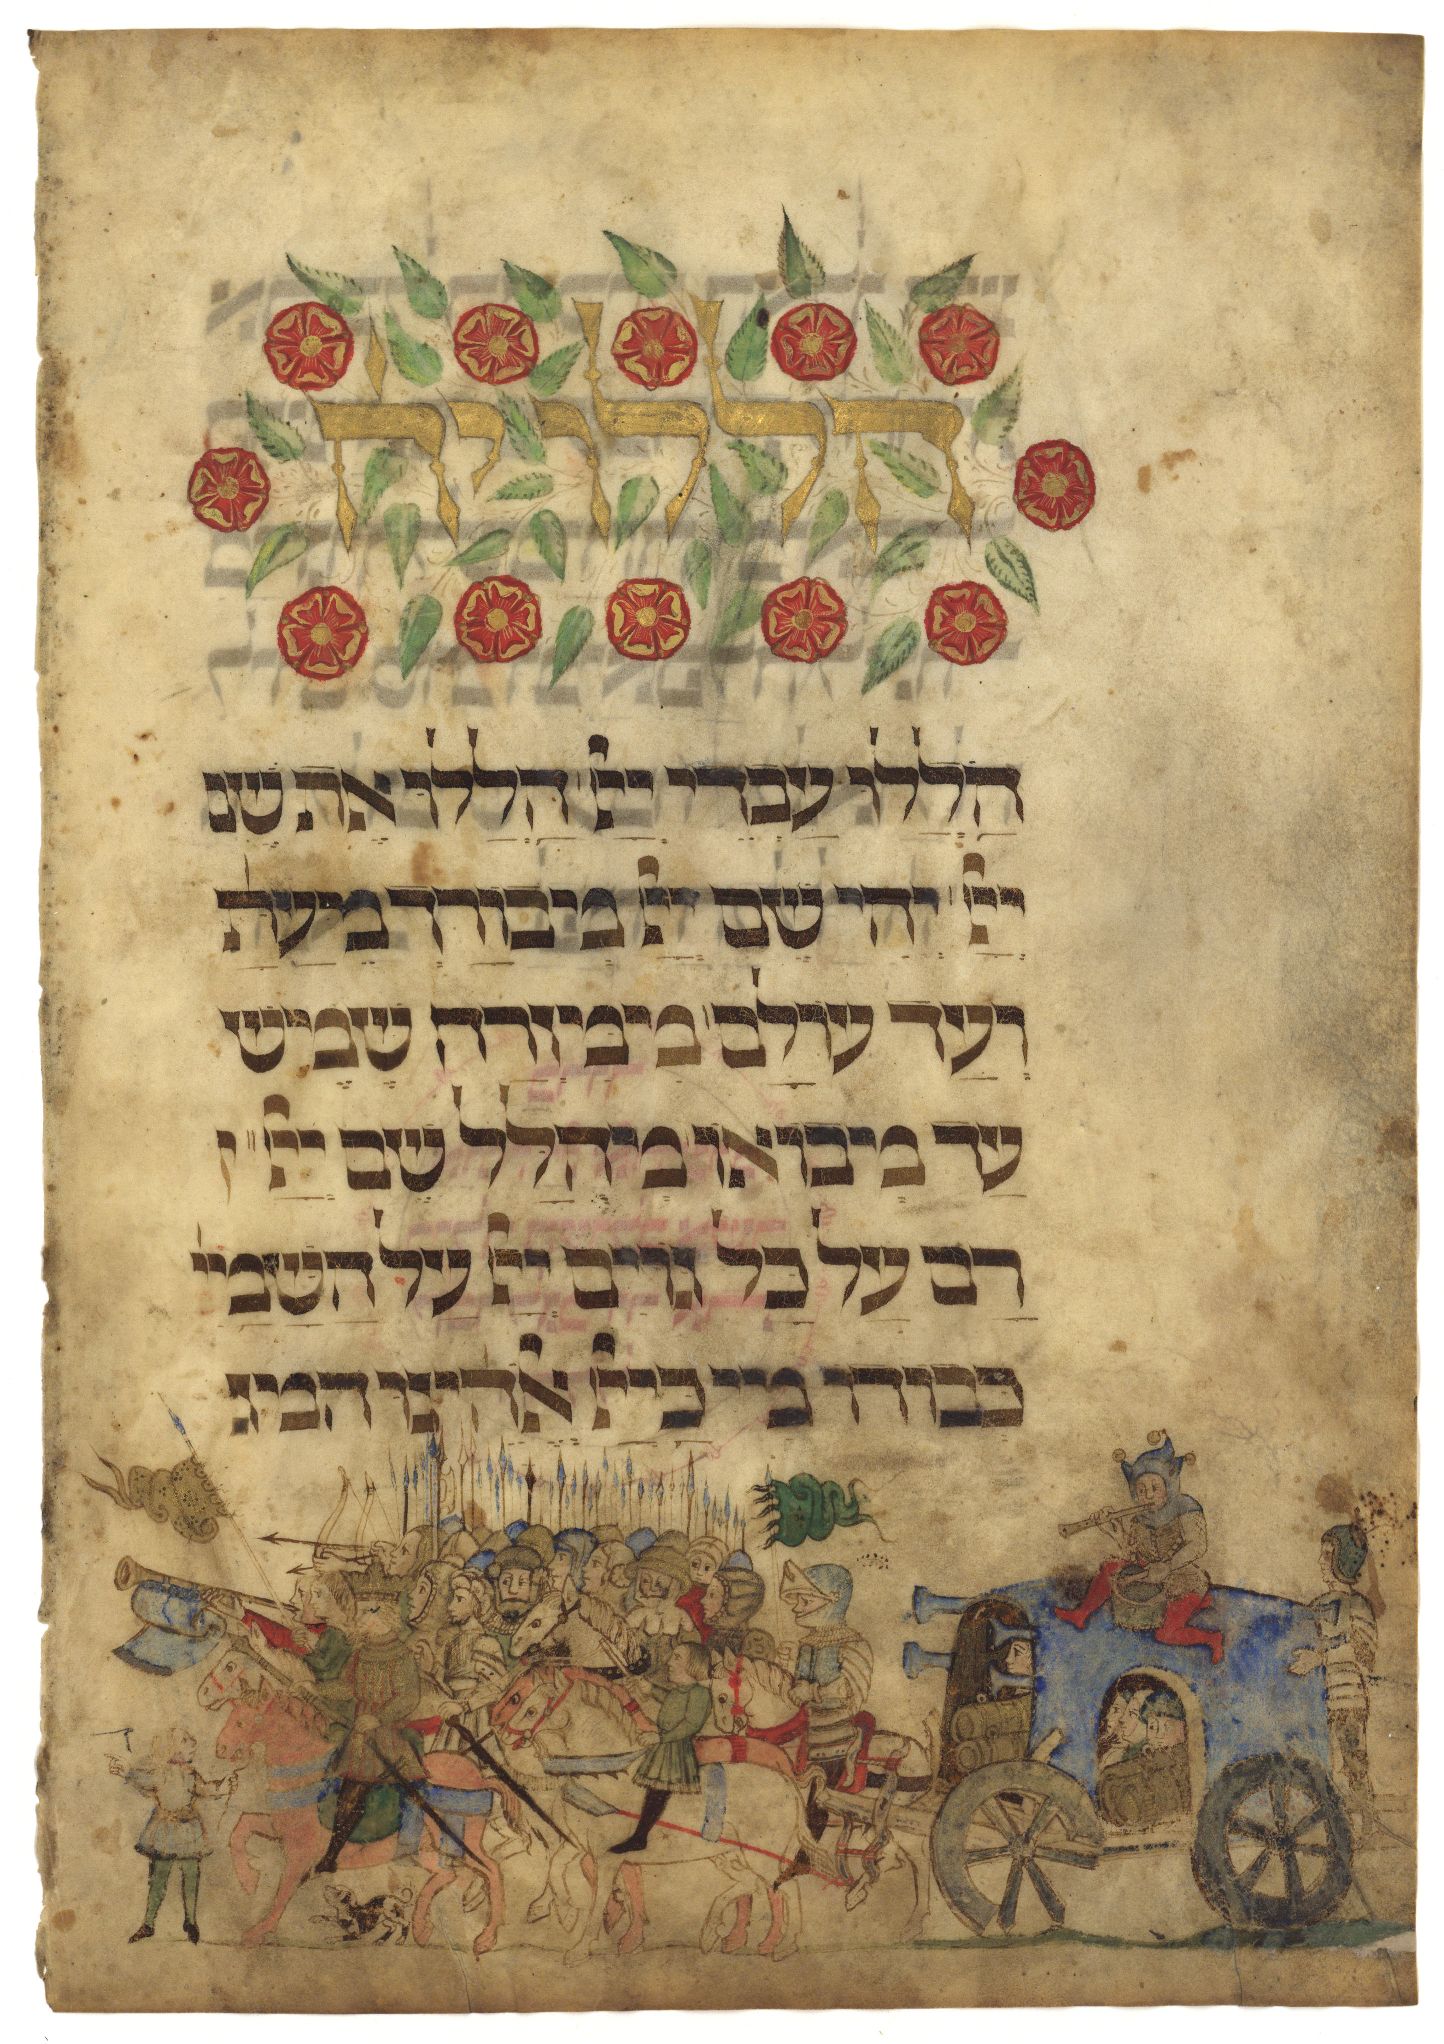 הללויה
הללו עבדי ייָ הללו את שם
ייָ יהי שם ייָ מבורך מעת
ועד עולם ממזרח שמש
עד מבואו מהלל שם ייָ
רם על כל גוים ייָ על השמי
כבודו מי כייָ אלהינו המג